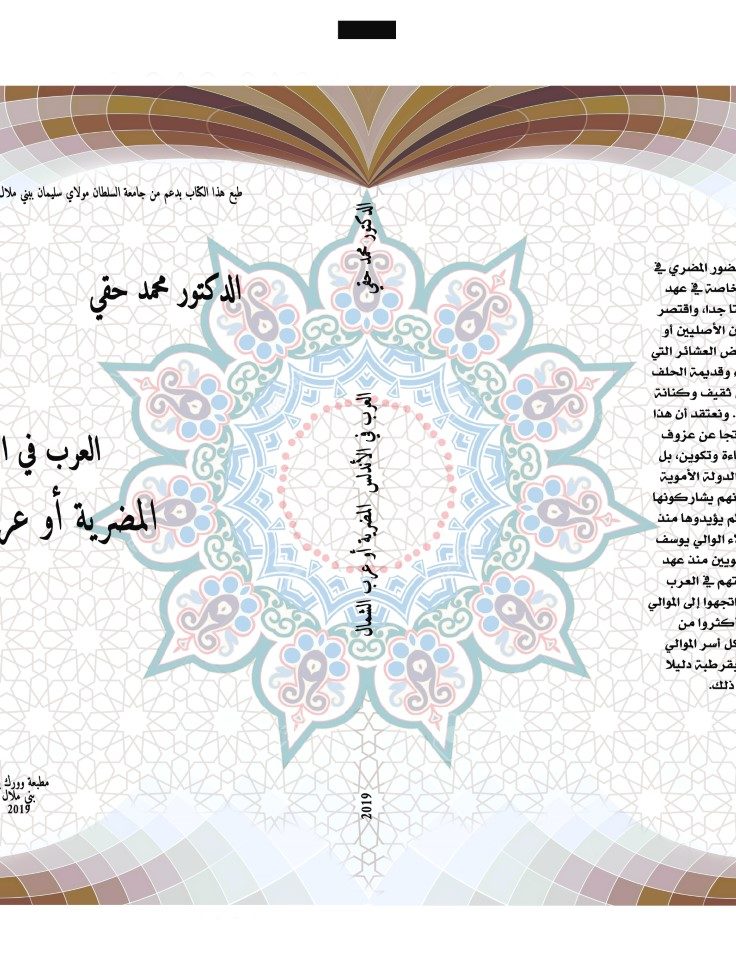 طبع هذا الكتاب بدعم من جامعة السلطان مولاي سليمان ببني ملال
الدكتور محمد حقي
العرب في ا
المضرية أو عر
مطبعة وورك
بني ملال
2019
الدكتور محمد حقي
العرب في الأندلس المضرية أو عرب الشمال
2019
ضور المضري في
خاصة في عهد
تا جدا، واقتصر
ن الأصليين أو
ض العشائر التي
، وقديمة الحلف
ثقيف وكنانة
. ونعتقد أن هذا
تجا عن عزوف
اءة وتكوين، بل
الدولة الأموية
نهم يشاركونها
لم يؤيدوها منذ
لاء الوالي يوسف
ويين منذ عهد
تهم في العرب
اتجهوا إلى الموالي
أكثروا من
كل أسر الموالي
بقرطبة دليلا
ذلك.